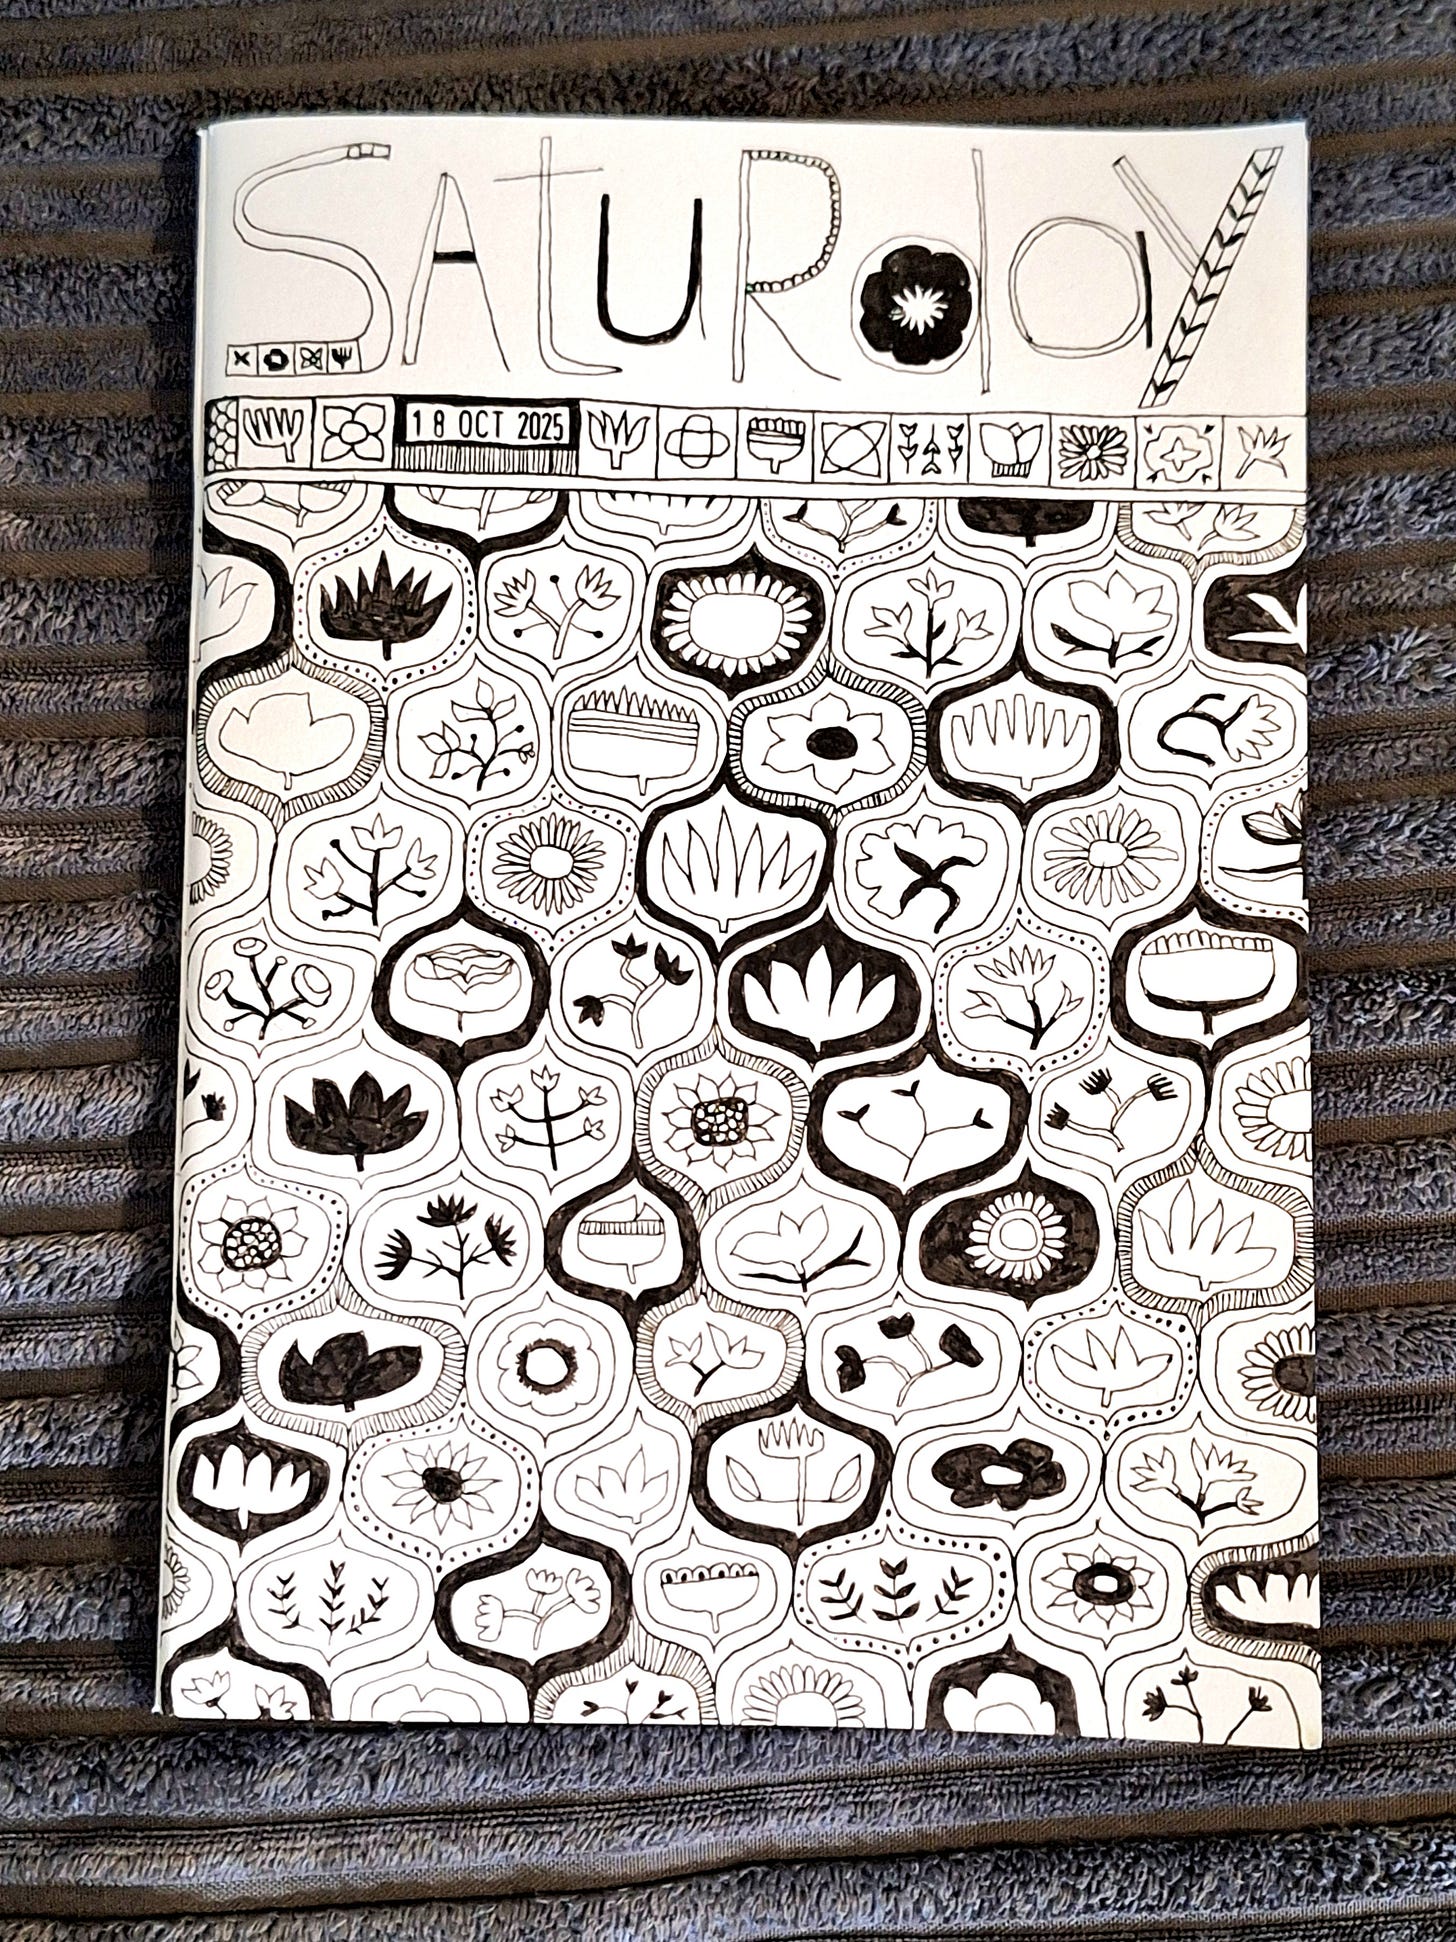 SAtuRday
18 OCT 2025